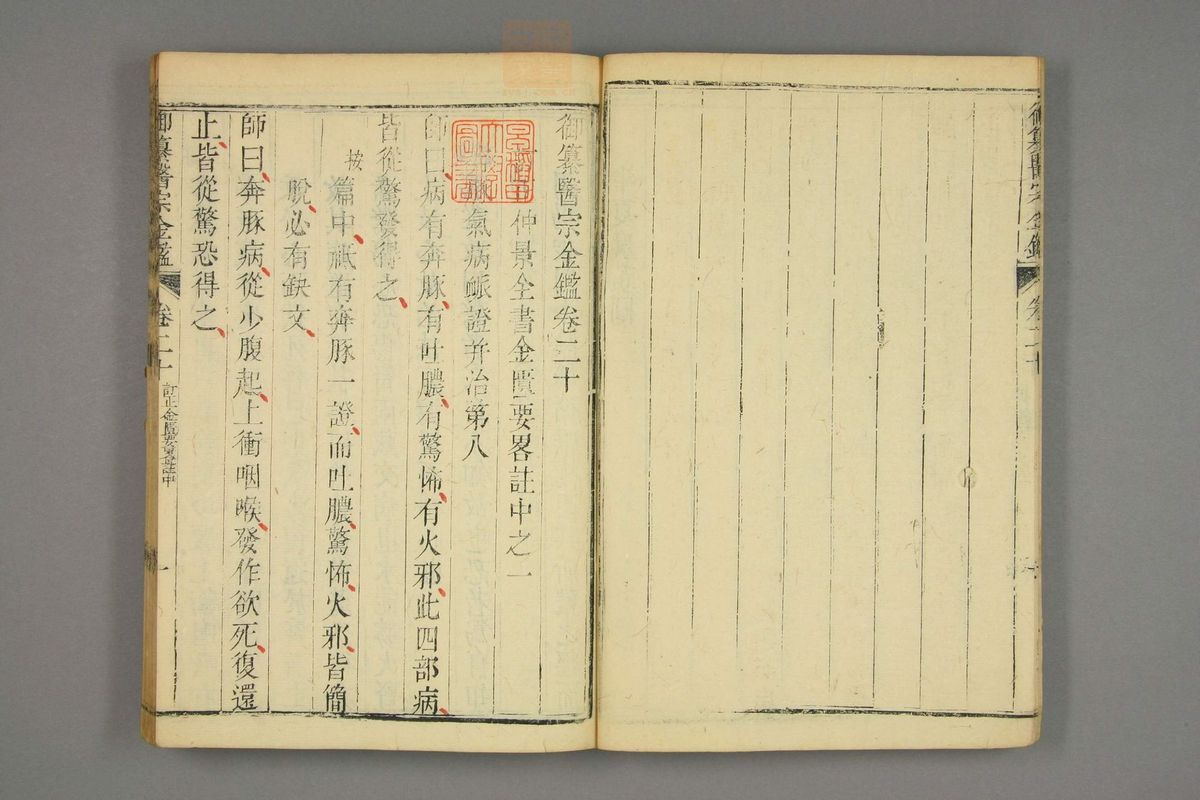 御纂醫宗金鑑 卷二十
御纂醫宗金鑑卷二十
仲景全書金匱要畧註中之一
氣病脈證并治第八
師曰病有奔豚有吐膿有驚怖有火邪此四部病
皆從驚發得之
按篇中祗有奔豚一證而吐膿驚怖火邪皆簡
脫必有缺文
師曰奔豚病從少腹起上衝咽喉發作欲死復還
止皆從驚恐得之
御纂醫宗金鑑 卷二十 訂正金匱要畧註中 一